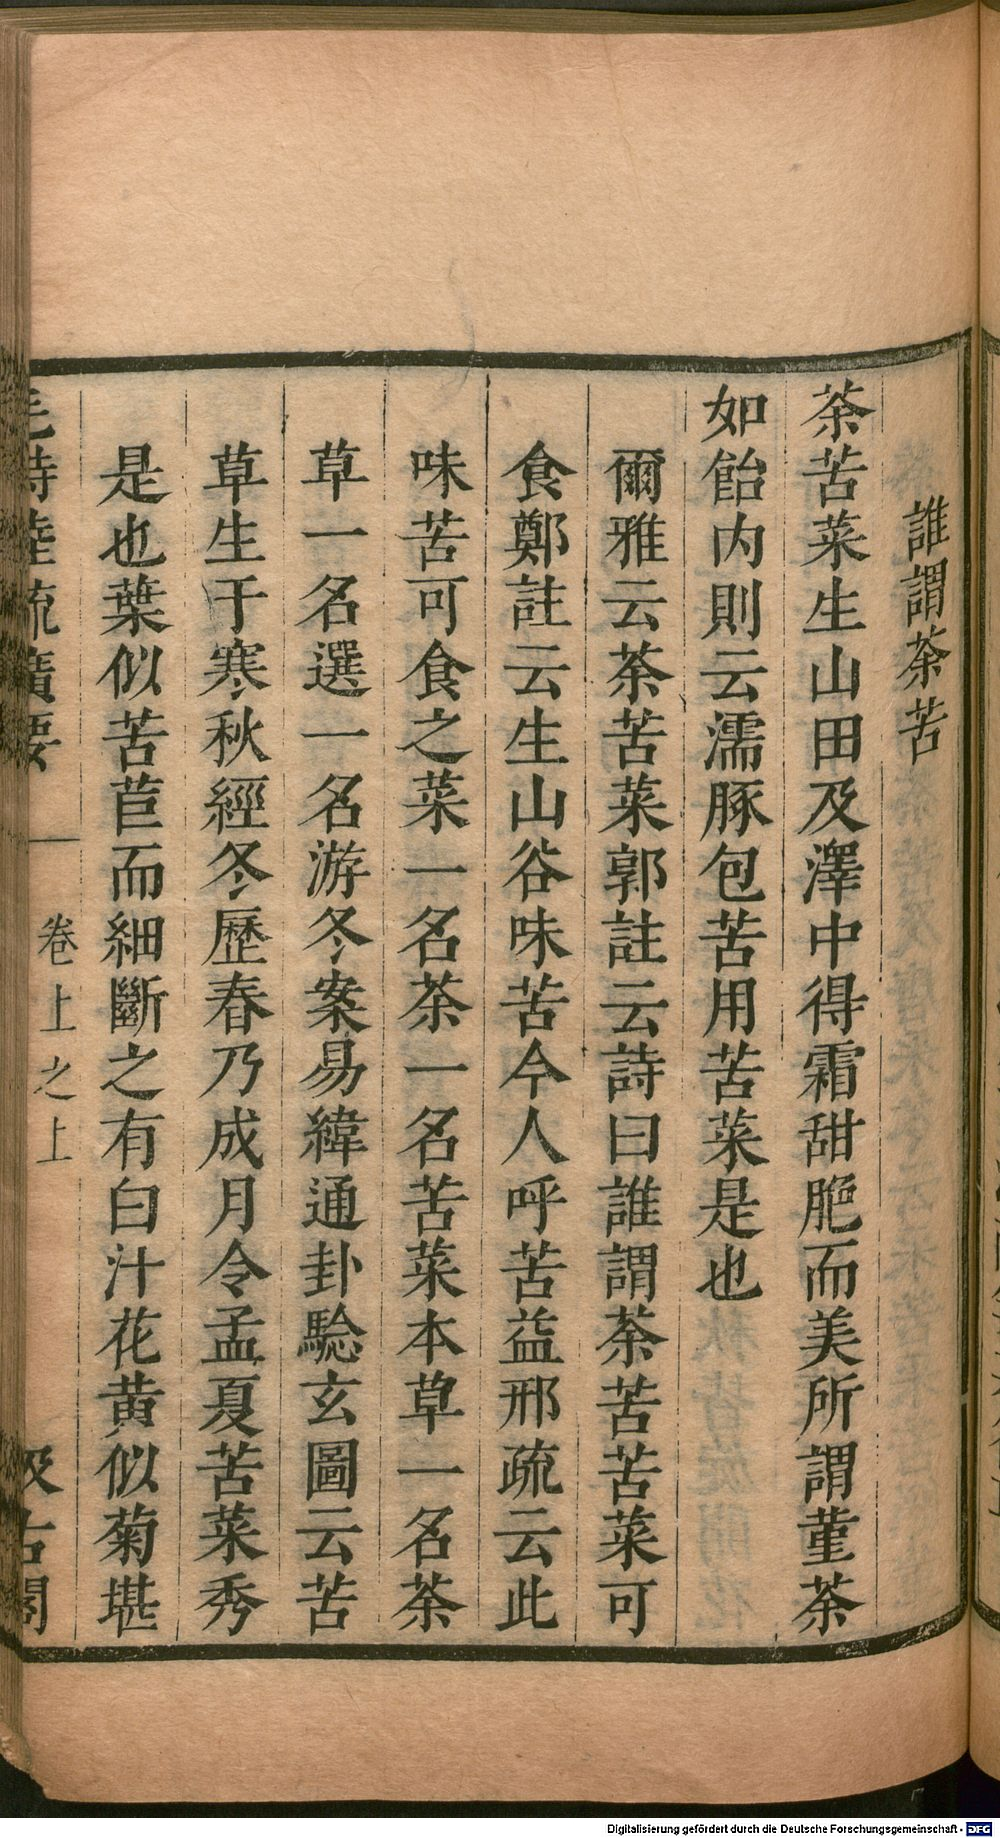 誰謂荼苦
荼苦菜生山田及澤中得霜甜脆而美所謂菫荼
如飴内則云濡豚包苦用苦菜是也
爾雅云荼苦菜郭註云詩曰誰謂荼苦苦菜可
食鄭註云生山谷味苦今人呼苦益邢疏云此
味苦可食之菜一名荼一名苦菜本草一名荼
草一名選一名游冬案易緯通卦騐玄圖云苦
草生于寒秋經冬歷春乃成月令孟夏苦菜秀
是也葉似苦苣而細斷之有白汁花黄似菊堪
毛詩陸疏廣要 卷上之上 汲古閣
Digitalisierung gefördert durch die Deutsche Forschungsgemeinschaft - DFG